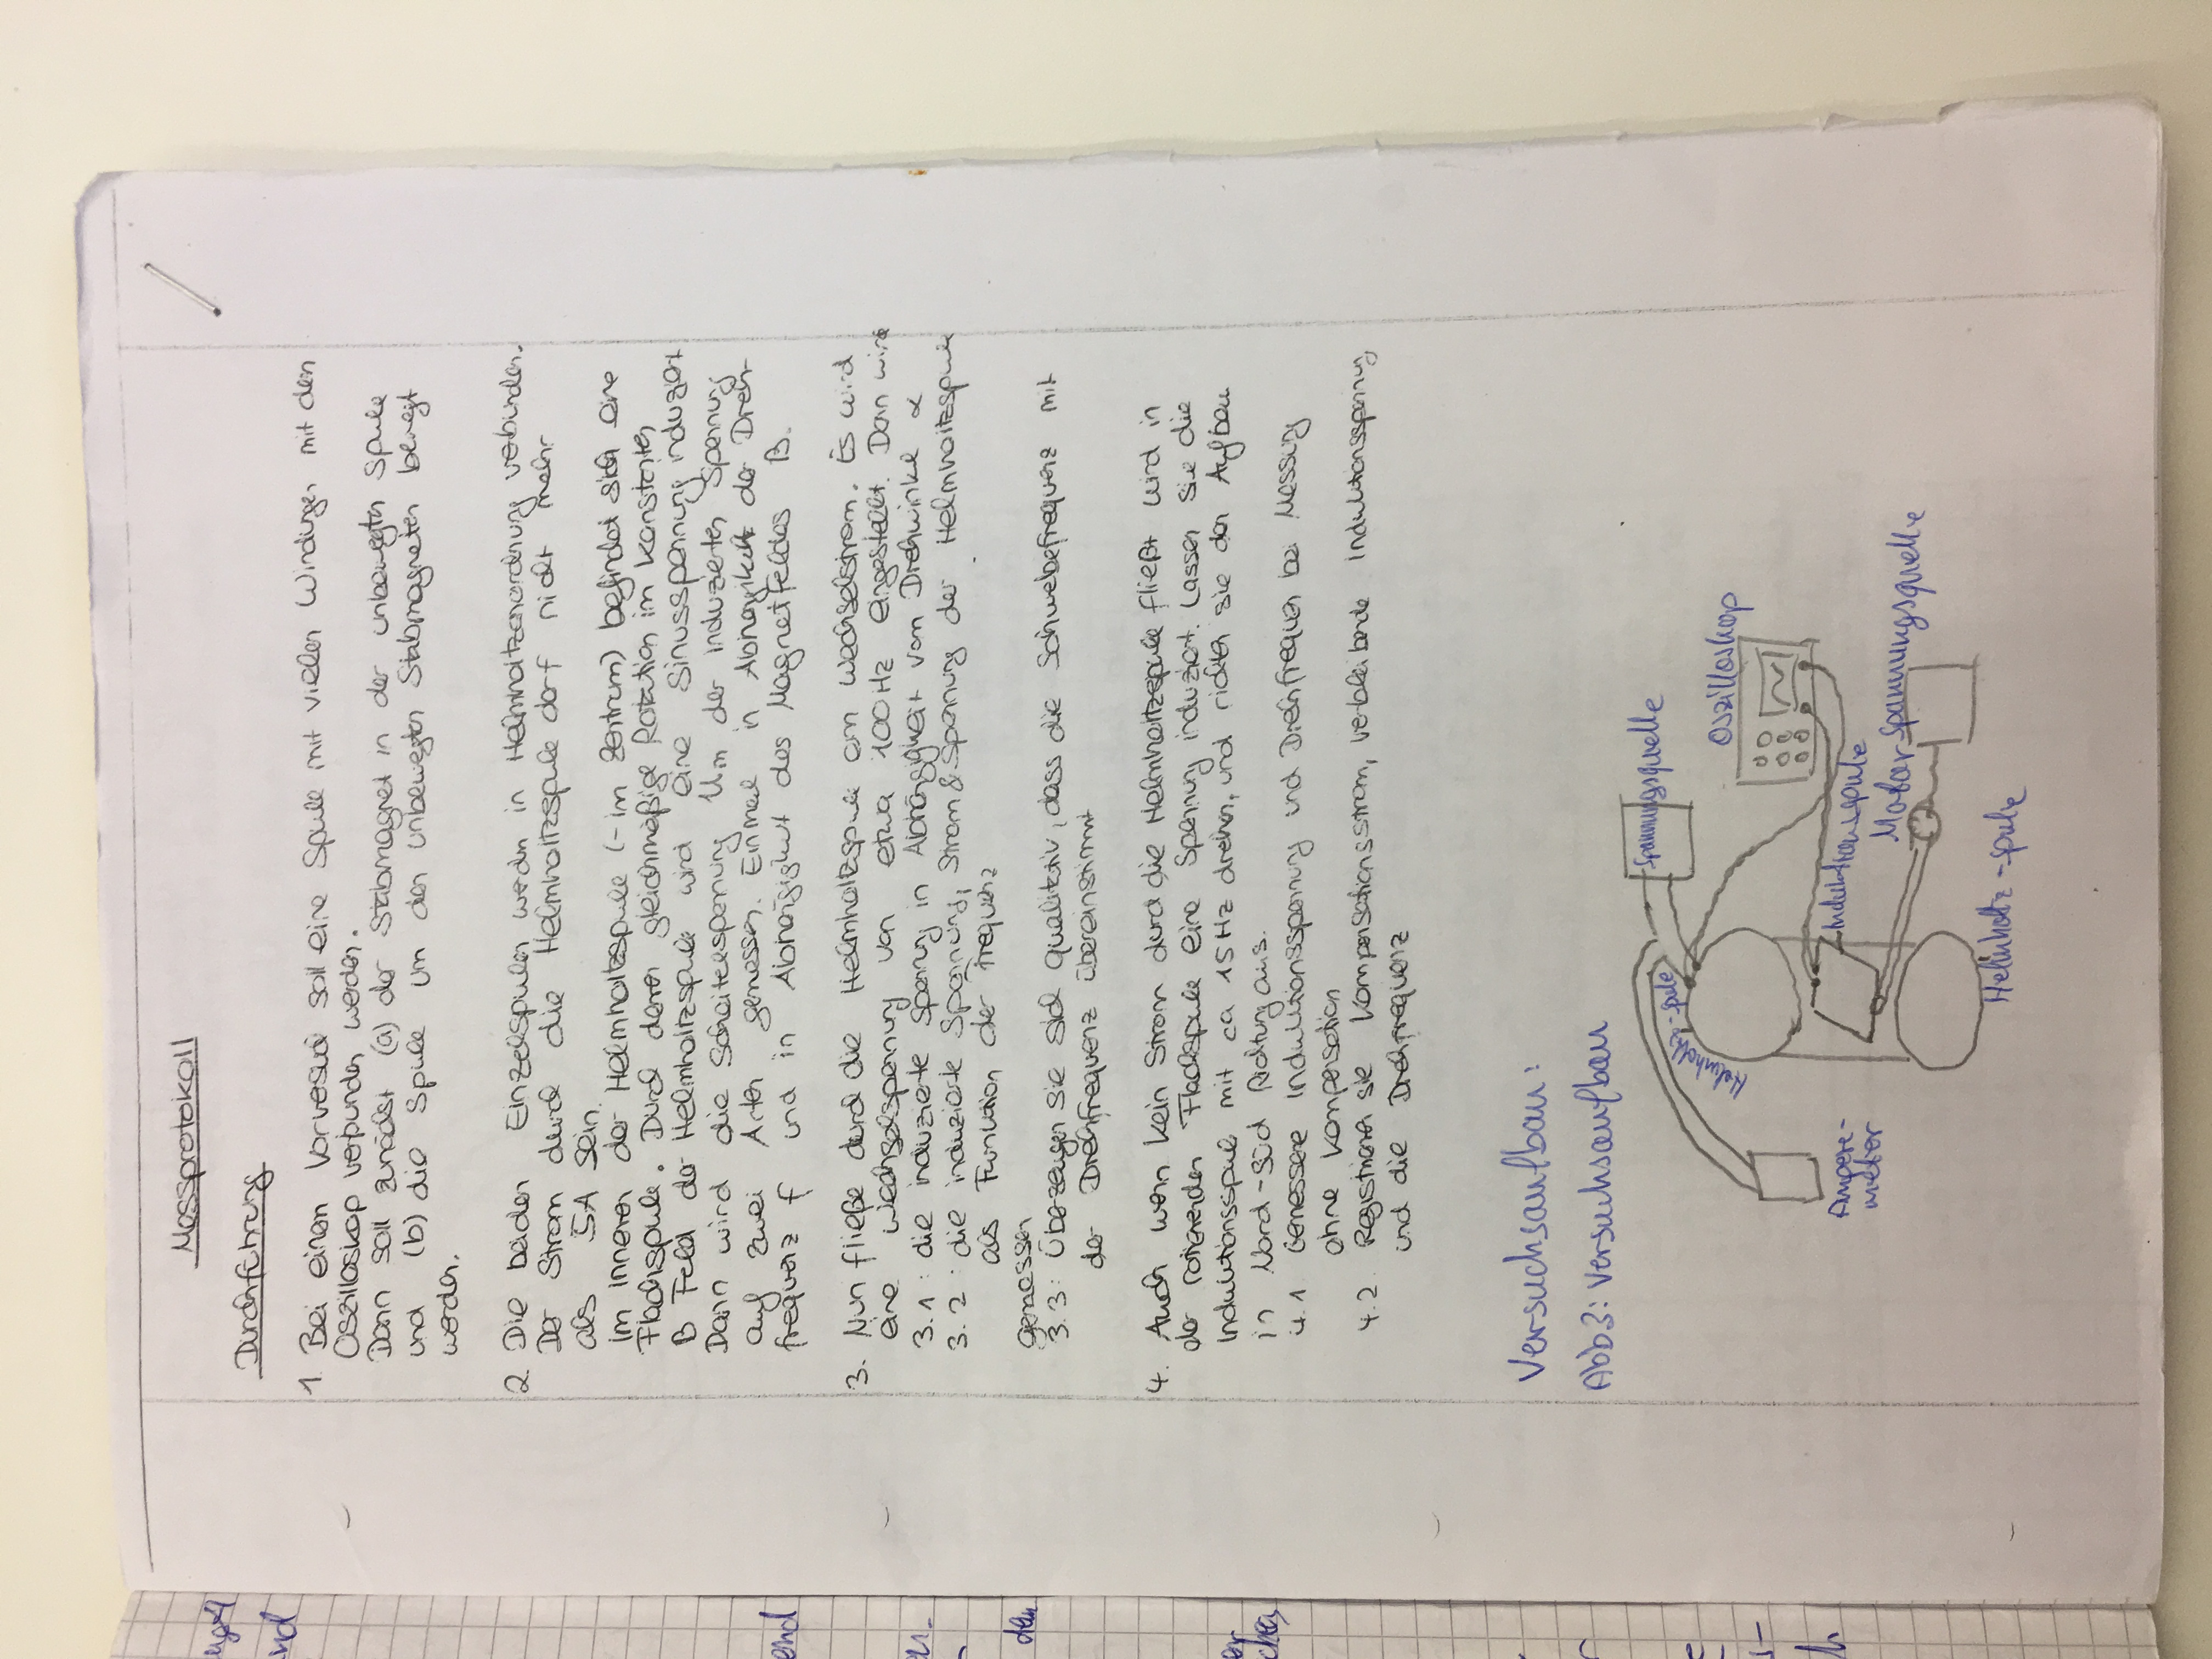 Messprotokoll
Durchführung
1. Bei einem Vorversuch soll eine Spule mit vielen Windungen mit dem
Oszilloskop verbunden werden.
Dann soll zunächst (a) der Stabmagnet in der unbewegten Spule
und (b) die Spule um den unbewegten Stabmagneten bewegt
werden.
2. Die beiden Einzelspulen werden in Helmholtzanordnung verbunden.
Der Strom durch die Helmholtzspule darf nicht mehr
als 5A sein.
im Inneren der Helmholtzspule (- im Zentrum) befindet sich eine
Flachspule. Durch deren gleichmäßige Rotation im konstanten
B Feld der Helmholtzspule wird eine Sinusspannung induziert
Dann wird die Scheitelspannung Um der induzierten Spannung
auf zwei Arten gemessen. Einmal in Abhängikeit der Dreh-
frequenz f und in Abhängigkeit des Magnetfeldes B.
3. Nun fließe durch die Helmholtzspule ein Wechselstrom. Es wird
eine Wechselspannung von etwa 100Hz eingestellt. Dann wird
3.1: die induzierte Spannung in Abhängigkeit vom Drehwinkel α
3.2: die induzierte Spannung, Strom & Spannung der Helmholtzspule
als Funktion der Frequenz
gemessen
3.3: Überzeugen sie sich qualitativ, dass die Schwebefrequenz mit
der Drehfrequenz übereinstimmt
4. Auch wenn kein Strom durch die Helmholtzspule fließt wird in
der rotierenden Flachspule eine Spannung induziert. Lassen sie die
Induktionsspule mit ca 15Hz drehen, und richten sie den Aufbau
in Nord-Süd Richtung aus.
4.1 Gemessene Induktionsspannung und Drehfrequenz bei Messung
ohne Kompensation
4.2. Registrieren sie Kompensationsstrom, verbleibende Induktionsspannung
und die Drehfrequenz
Versuchsaufbau:
Abb3: Versuchsaufbau
Spannungsquelle
Helmholtz-spule
Oszilloskop
Ampere-
meter
Induktionspule
Motor Spannungsquelle
Helmholtz-spule